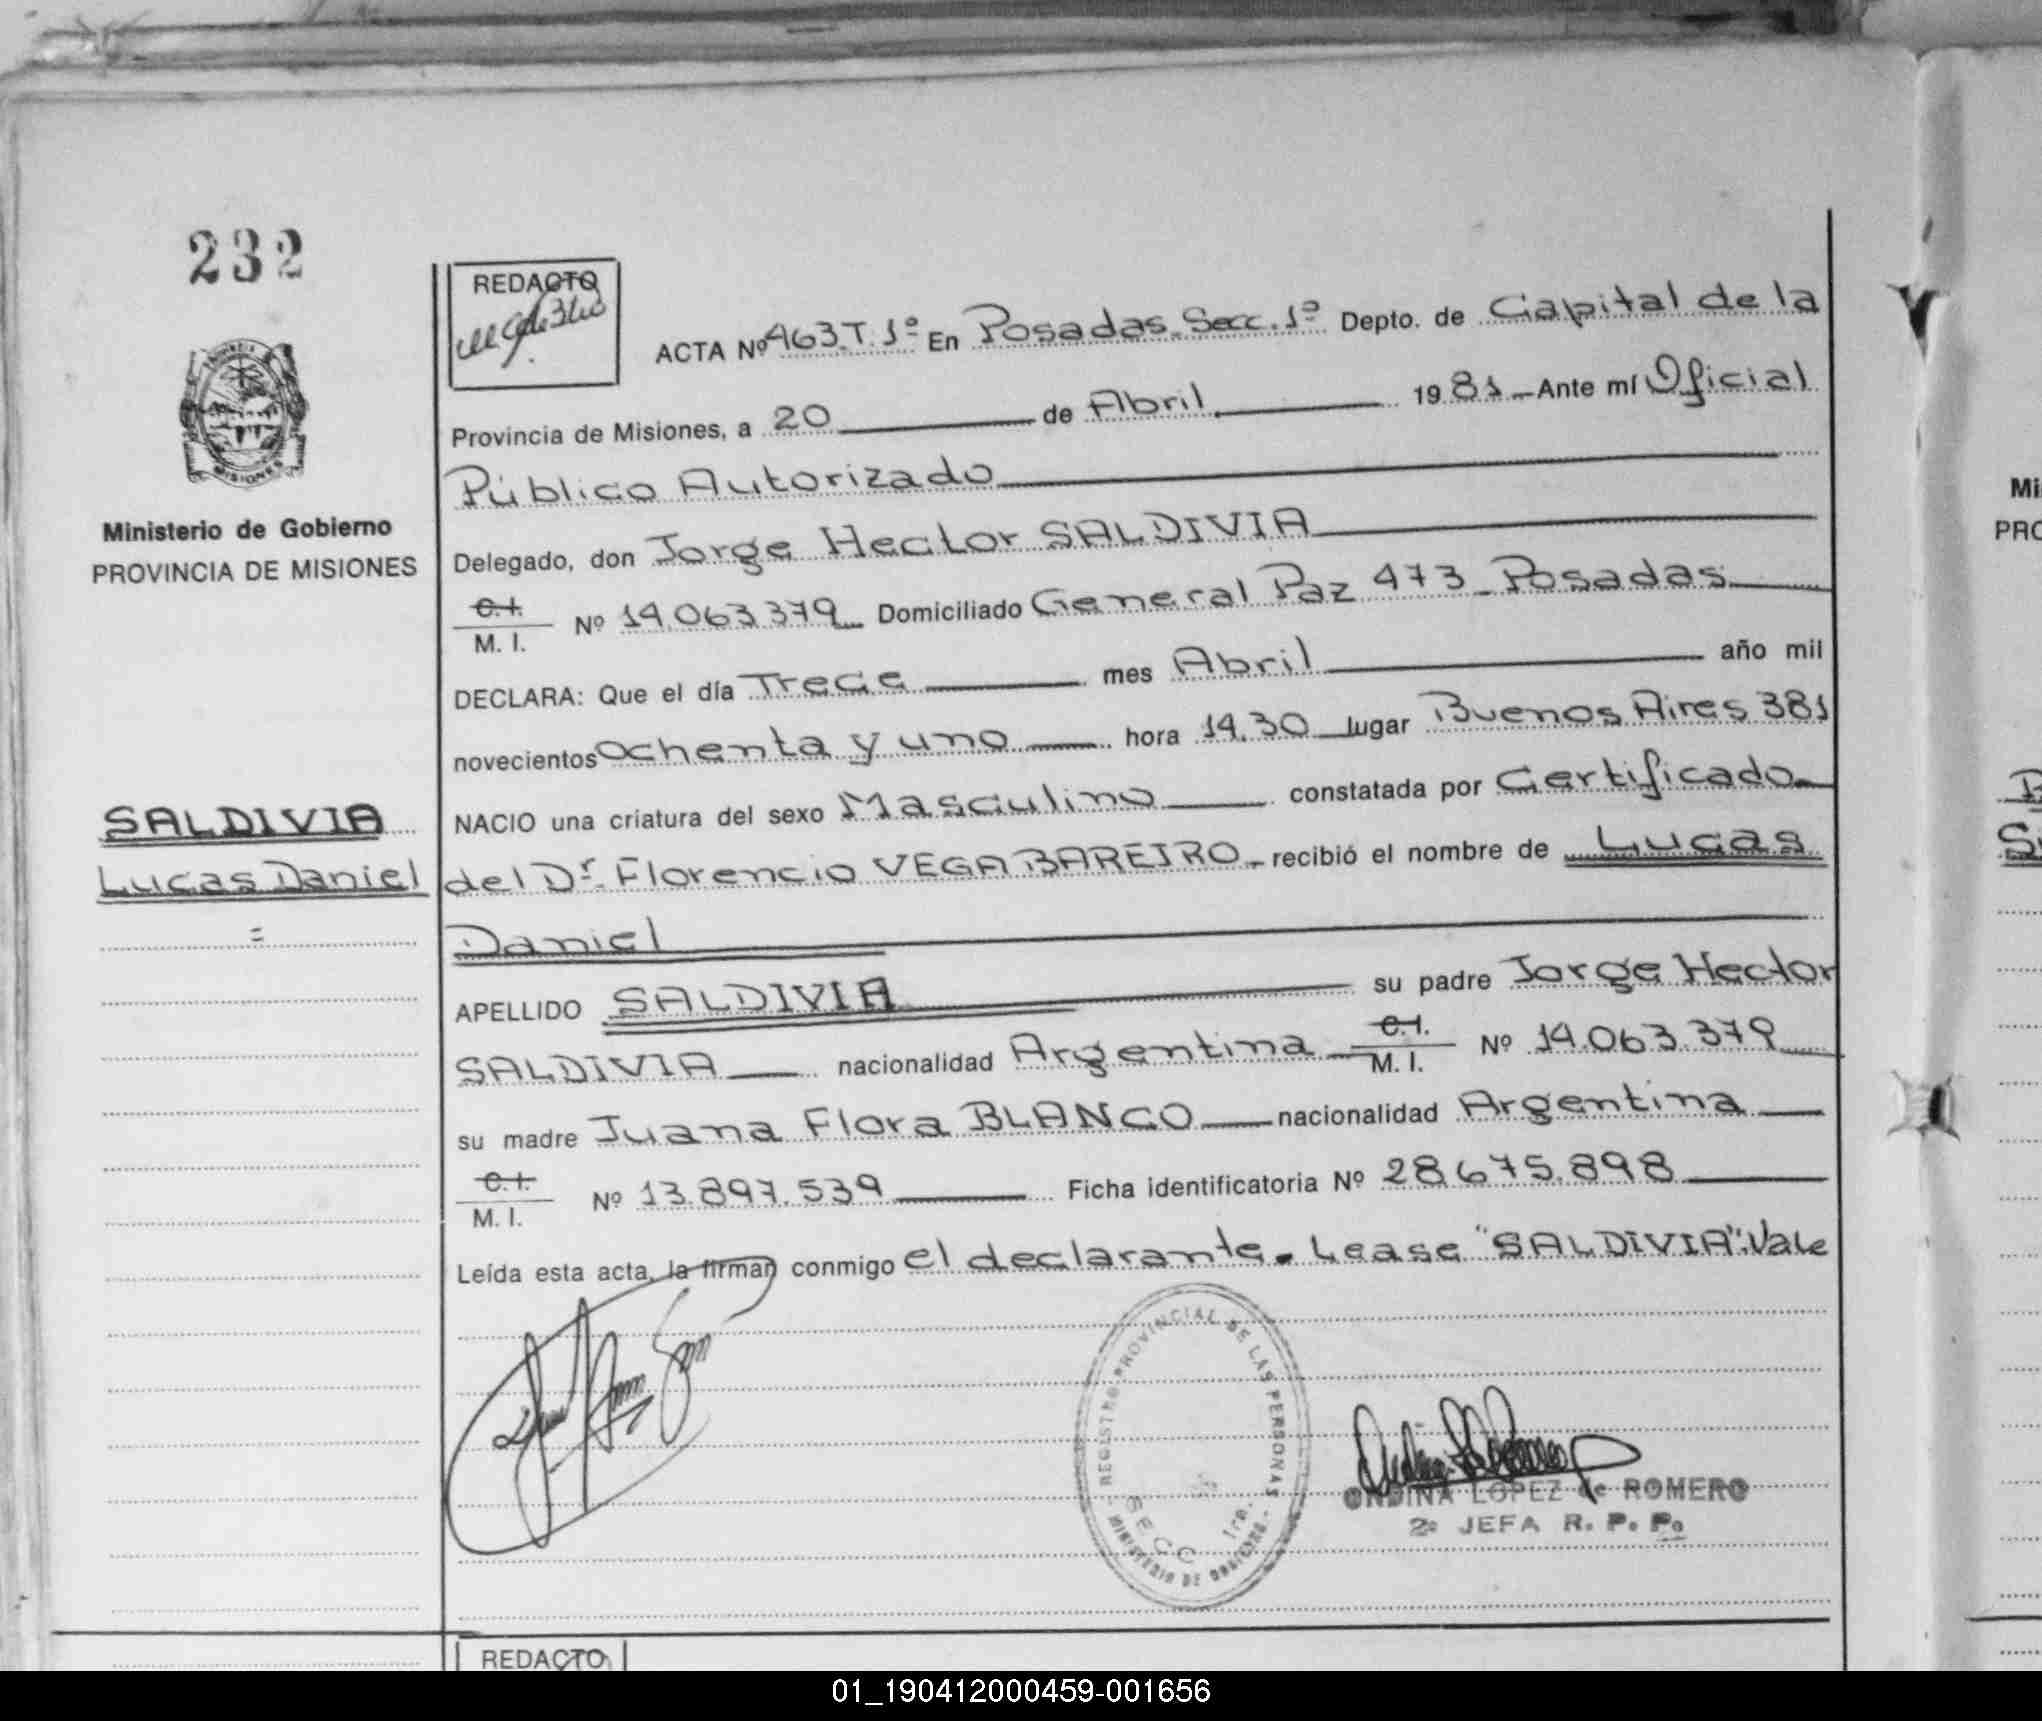 232
REDACTO
ACTA Nº 463.T.1º En Posadas.Secc.1º Depto. de Capital de la
Provincia de Misiones, a 20 de Abril 1981 Ante mí Oficial
Público Autorizado
Delegado, don Jorge Hector SALDIVIA
C.I. M. I. Nº 14.063.379 Domiciliado General Paz 473 - Posadas
DECLARA: Que el día Trece mes Abril año mil
novecientos Ochenta y uno hora 14.30 lugar Buenos Aires 381
NACIO una criatura del sexo Masculino constatada por Certificado
del Dr. Florencio VEGA BAREIRO - recibió el nombre de Lucas
Daniel
APELLIDO SALDIVIA su padre Jorge Hector
SALDIVIA nacionalidad Argentina C.I. M. I. Nº 14.063.379
su madre Juana Flora BLANCO nacionalidad Argentina
C.I. M. I. Nº 13.897.539 Ficha identificatoria Nº 28.675.898
Leída esta acta, la firman conmigo el declarante. Lease "SALDIVIA". Vale
Ministerio de Gobierno
PROVINCIA DE MISIONES
SALDIVIA
Lucas Daniel
=
REGISTRO PROVINCIAL DE LAS PERSONAS
SECC 1ra.
MINISTERIO DE GOBIERNO
ONDINA LOPEZ de ROMERO
2º JEFA R. P. P.
REDACTO
Mi
PRO
01_190412000459-001656